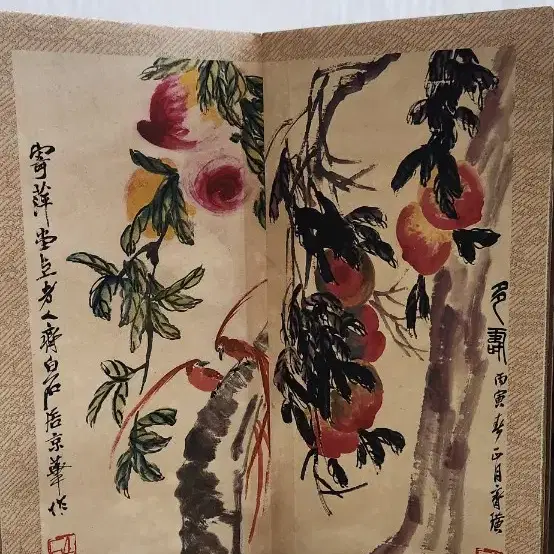 多壽
丙寅春正月齊璜
寄萍堂上老人齊白石居京華作